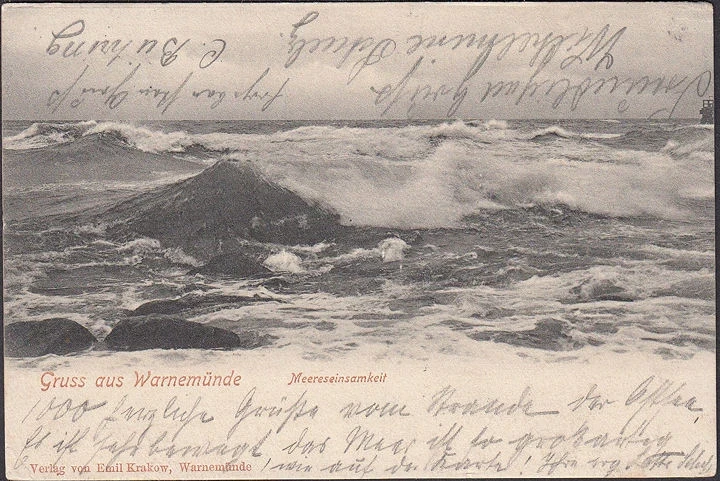 Freundlichen Gruß
Wilhelmine
Gruß
C. Bühring
Gruss aus Warnemünde
Meereseinsamkeit
1000 herzliche Grüße vom Strande der Ostsee.
Es ist sehr bewegt das Meer ist so großartig
wie auf der Karte! Ihre
Verlag von Emil Krakow, Warnemünde